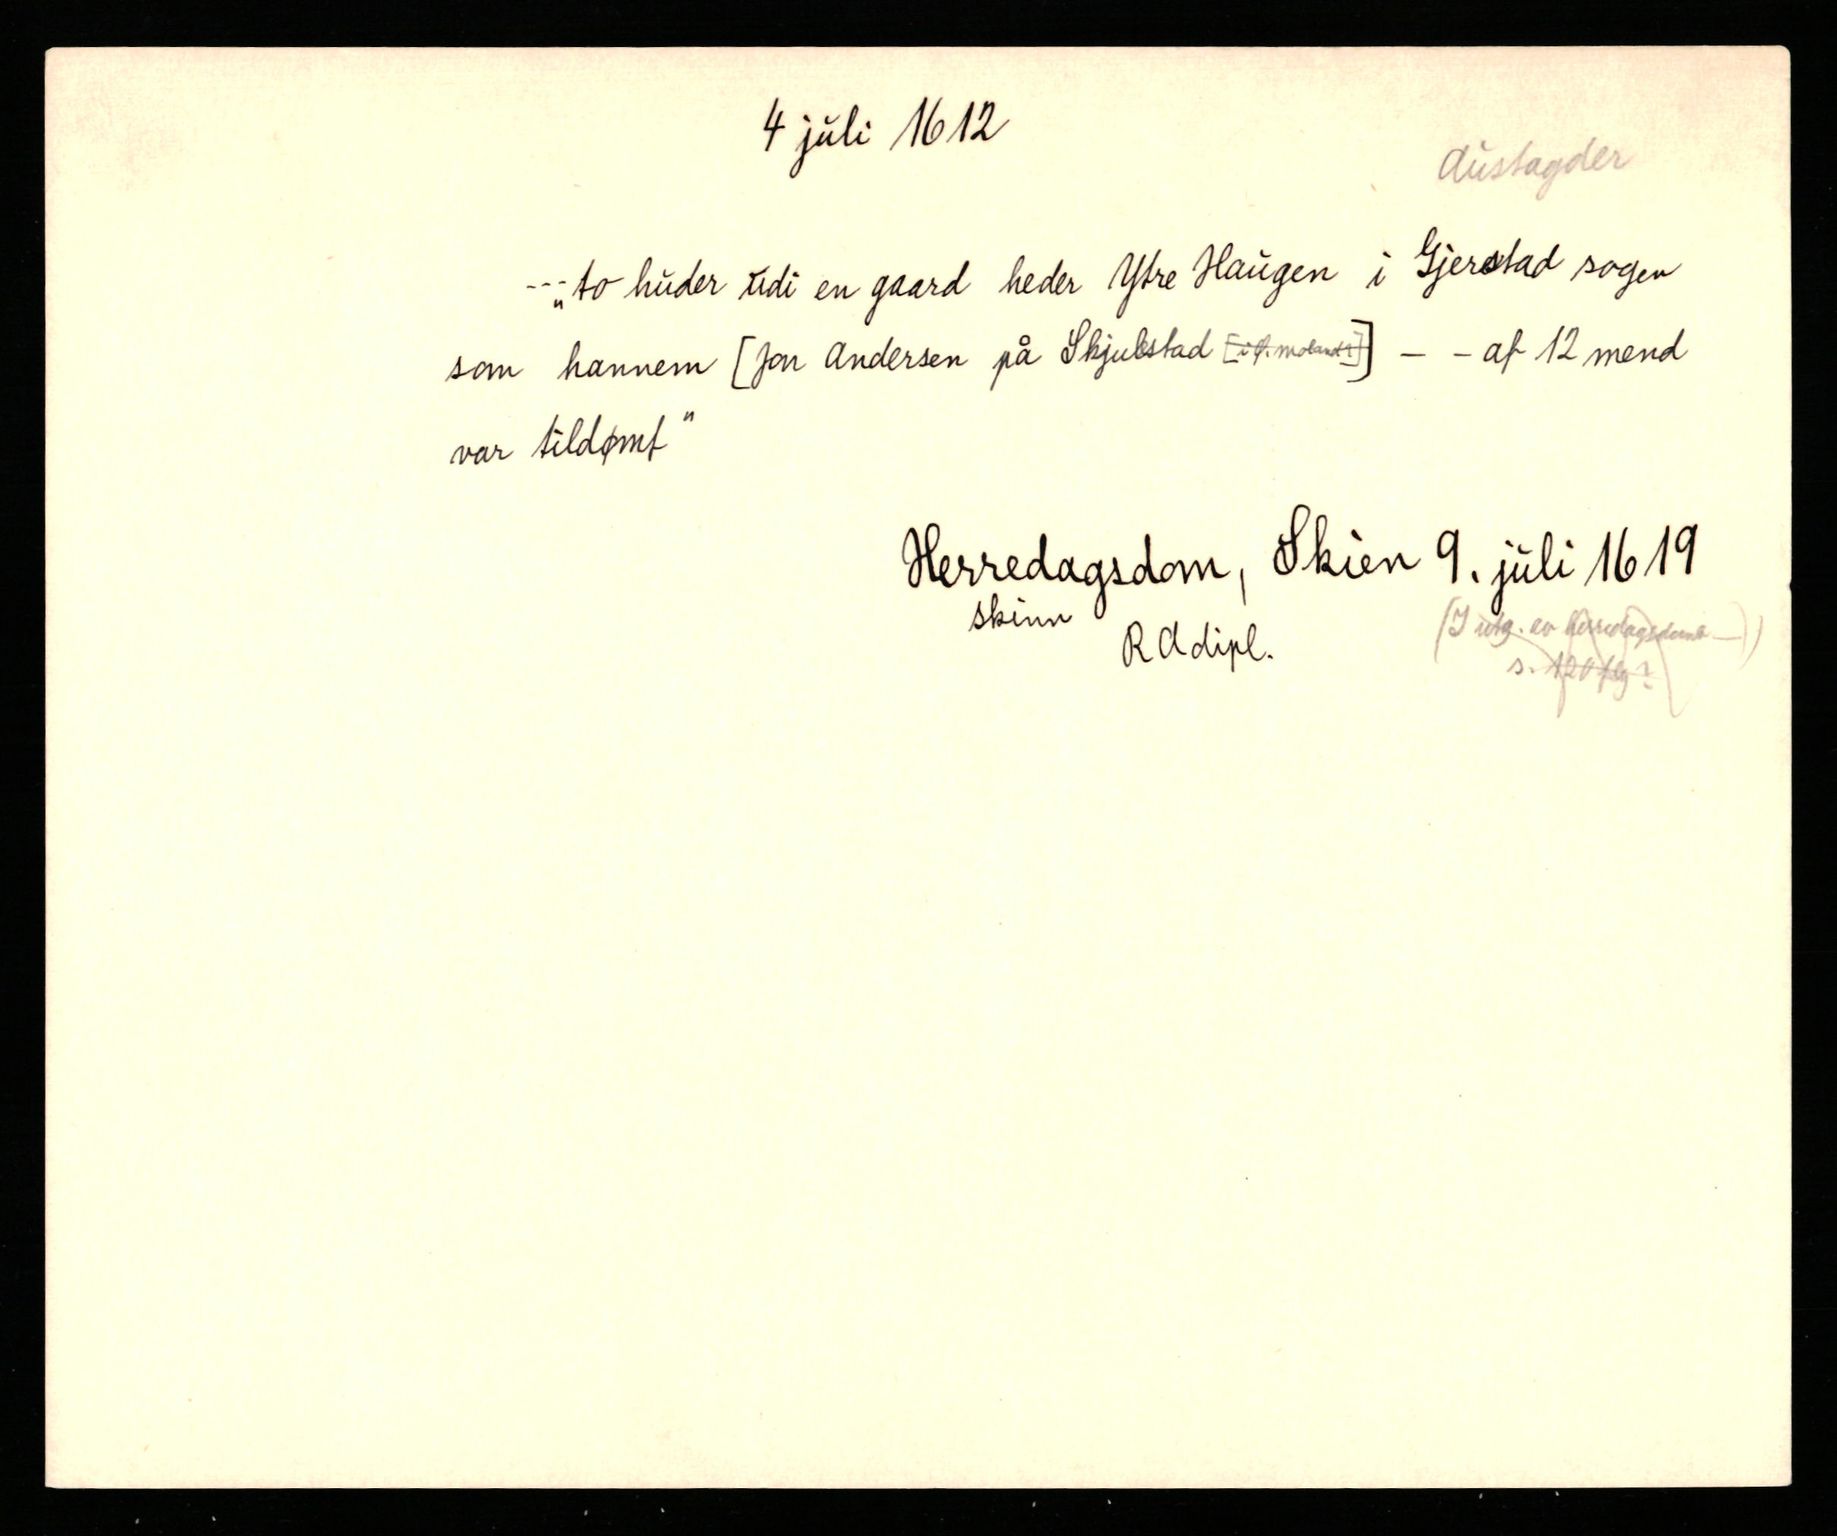 4 juli 1612
Austagder
--- „to huder udi en gaard heder Ytre Haugen i Gjerstad sogen
som hannem [Jon Andersen på Skjulestad [i Ø. Moland?]] – – af 12 mend
var tildømt"
Herredagsdom, Skien 9. juli 1619
skinn
RA dipl.
(I utg. av herredagsdomb —)
s. 120 flg?